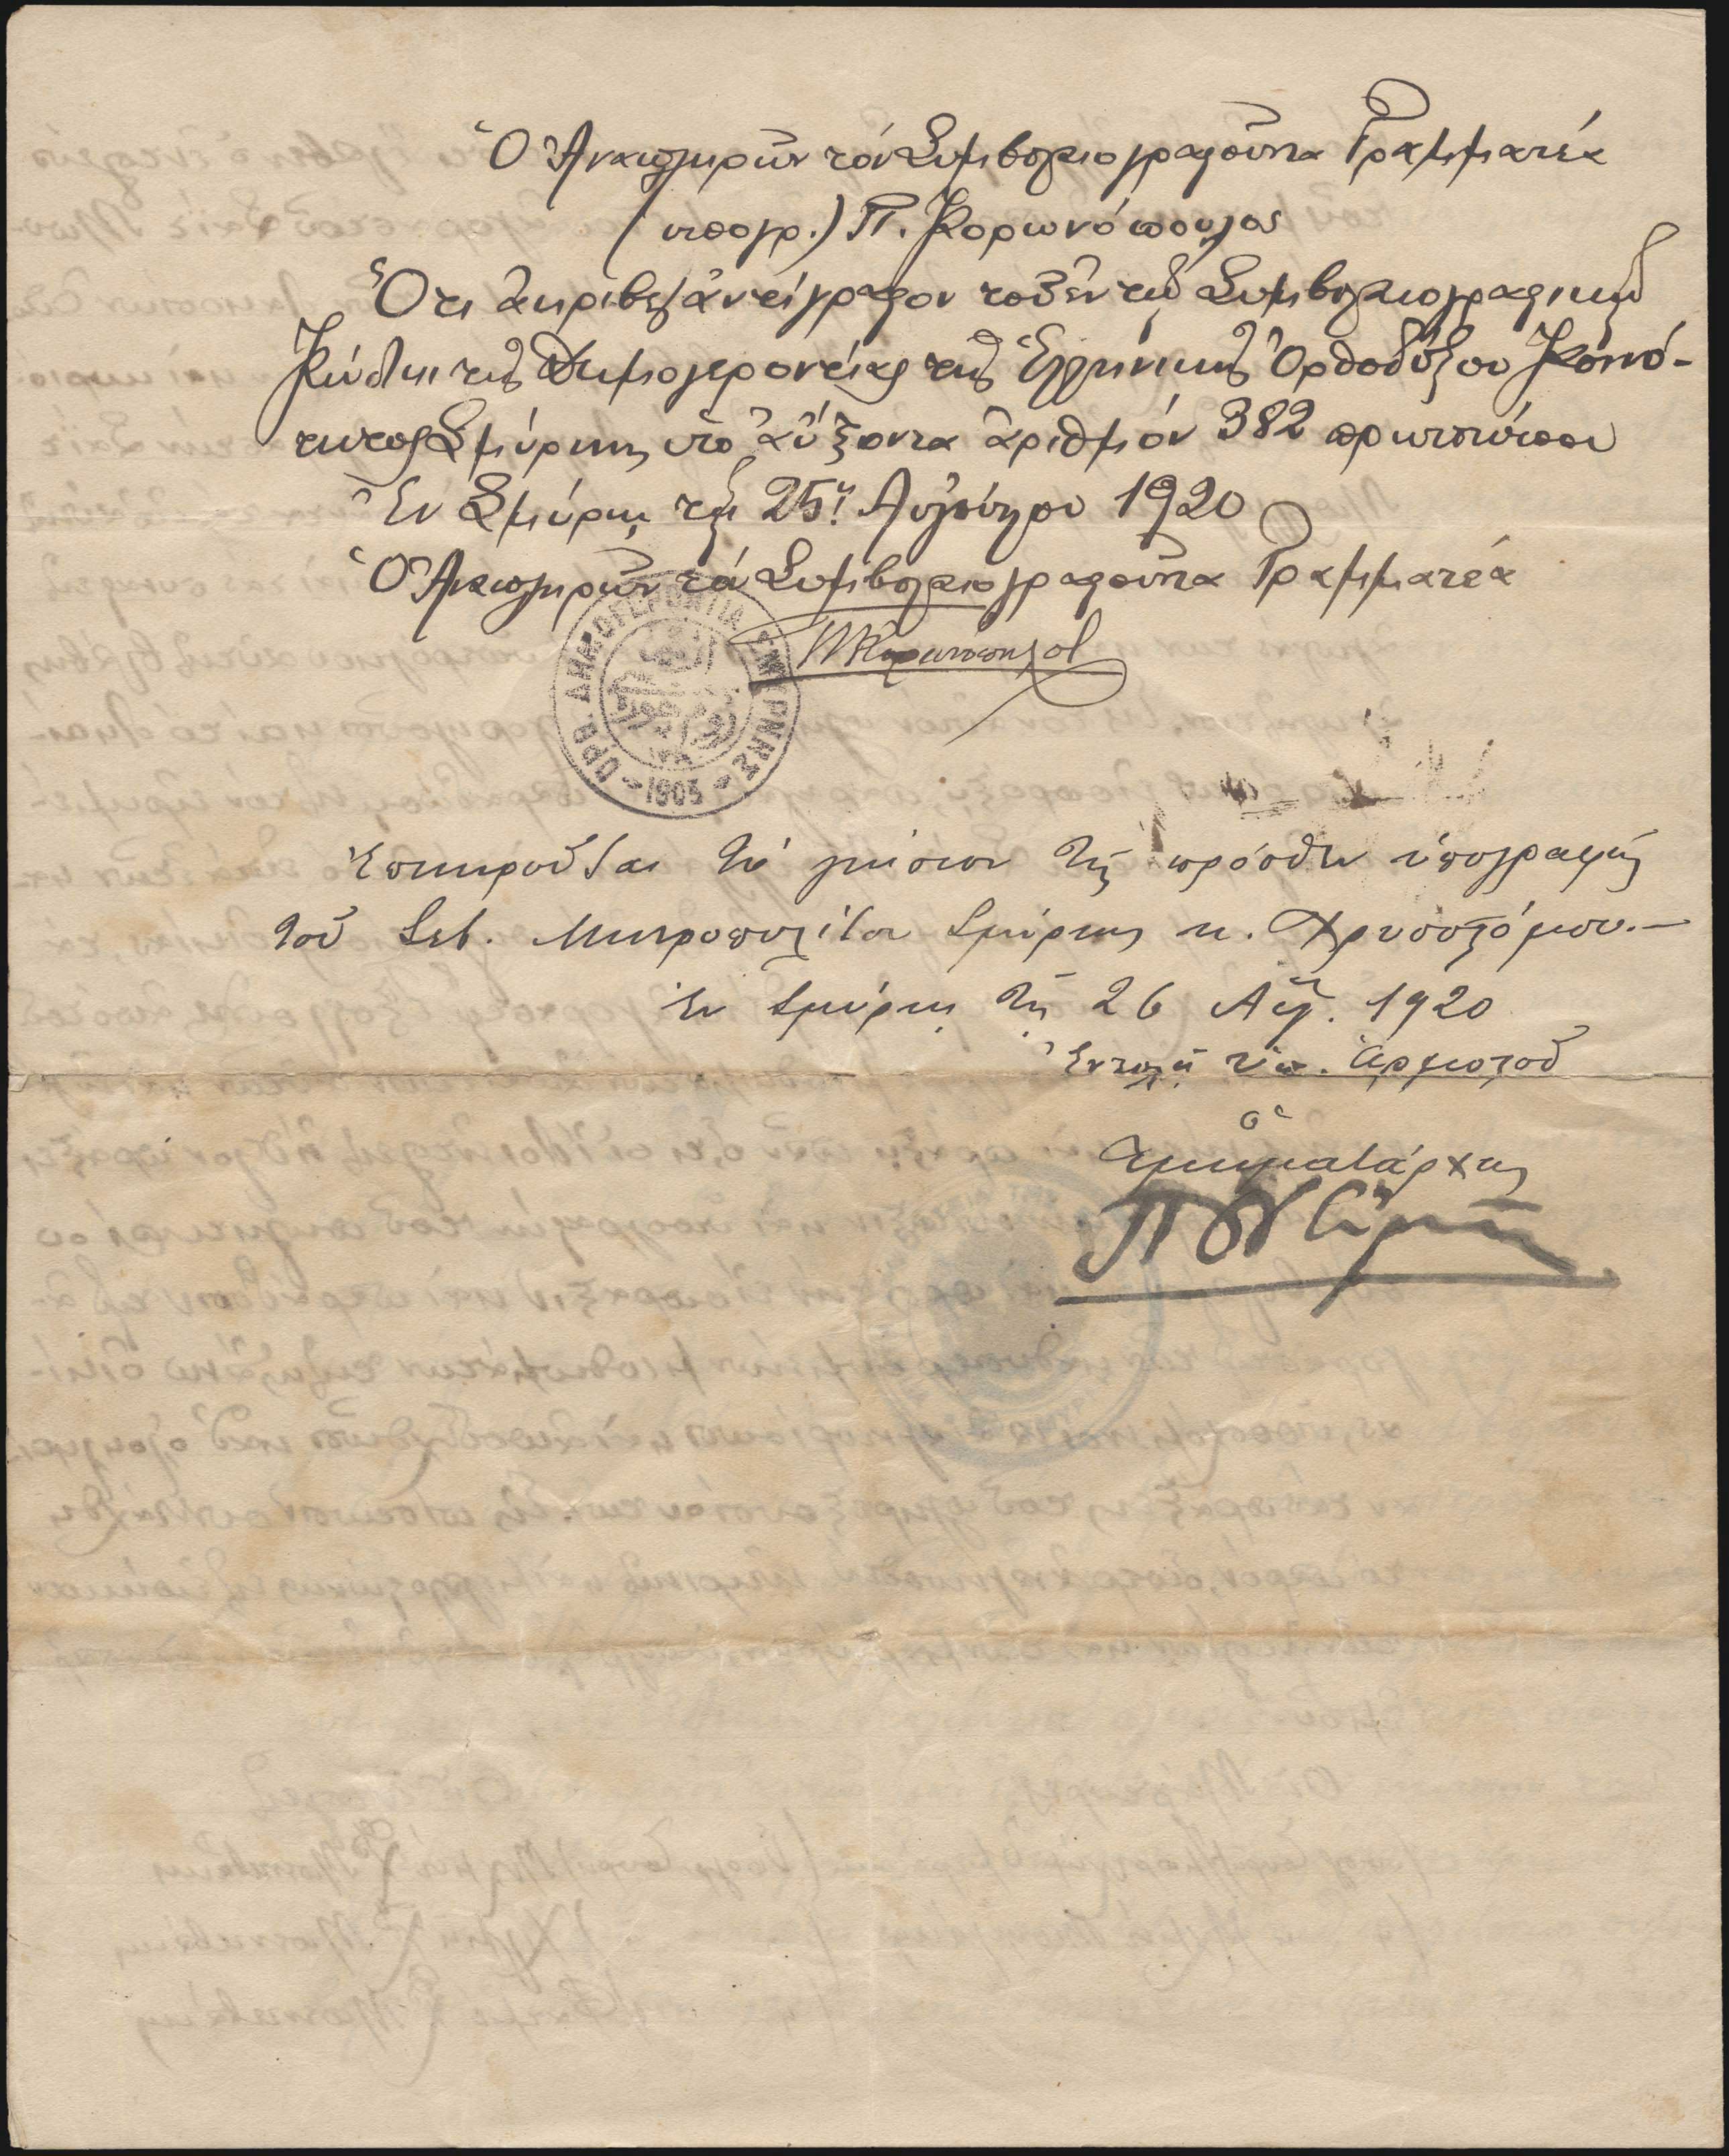 Ὁ Ἀναπληρῶν τόν Συμβολαιογραφοῦντα Γραμματέα
(υπογρ.) Π. Κορωνόπουλος
Ὅτι ἀκριβές ἀντίγραφον τοῦ ἐν τῷ Συμβολαιογραφικῷ
Κώδικι τῆς Δημογεροντείας τῆς Ἑλληνικῆς Ὀρθοδόξου Κοινό-
τητος Σμύρνης ὑπό αὔξοντα ἀριθμόν 382 πρωτοτύπου
Ἐν Σμύρνῃ τῇ 25ῃ Αὐγούστου 1920
Ὁ Ἀναπληρῶν τόν Συμβολαιογραφοῦντα Γραμματέα
ΠΚορωνόπουλος
ΟΡΘ. ΔΗΜΟΓΕΡΟΝΤΙΑ ΣΜΥΡΝΗΣ
1903
Ἐπικυροῦται τό γνήσιον τῆς πρόσθεν ὑπογραφῆς
τοῦ Σεβ. Μητροπολίτου Σμύρνης κ. Χρυσοστόμου.—
Ἐν Σμύρνῃ τῇ 26 Αὐγ. 1920
Ἐντολῇ Ὑπ. Ἁρμοστοῦ
ὁ
Τμηματάρχης